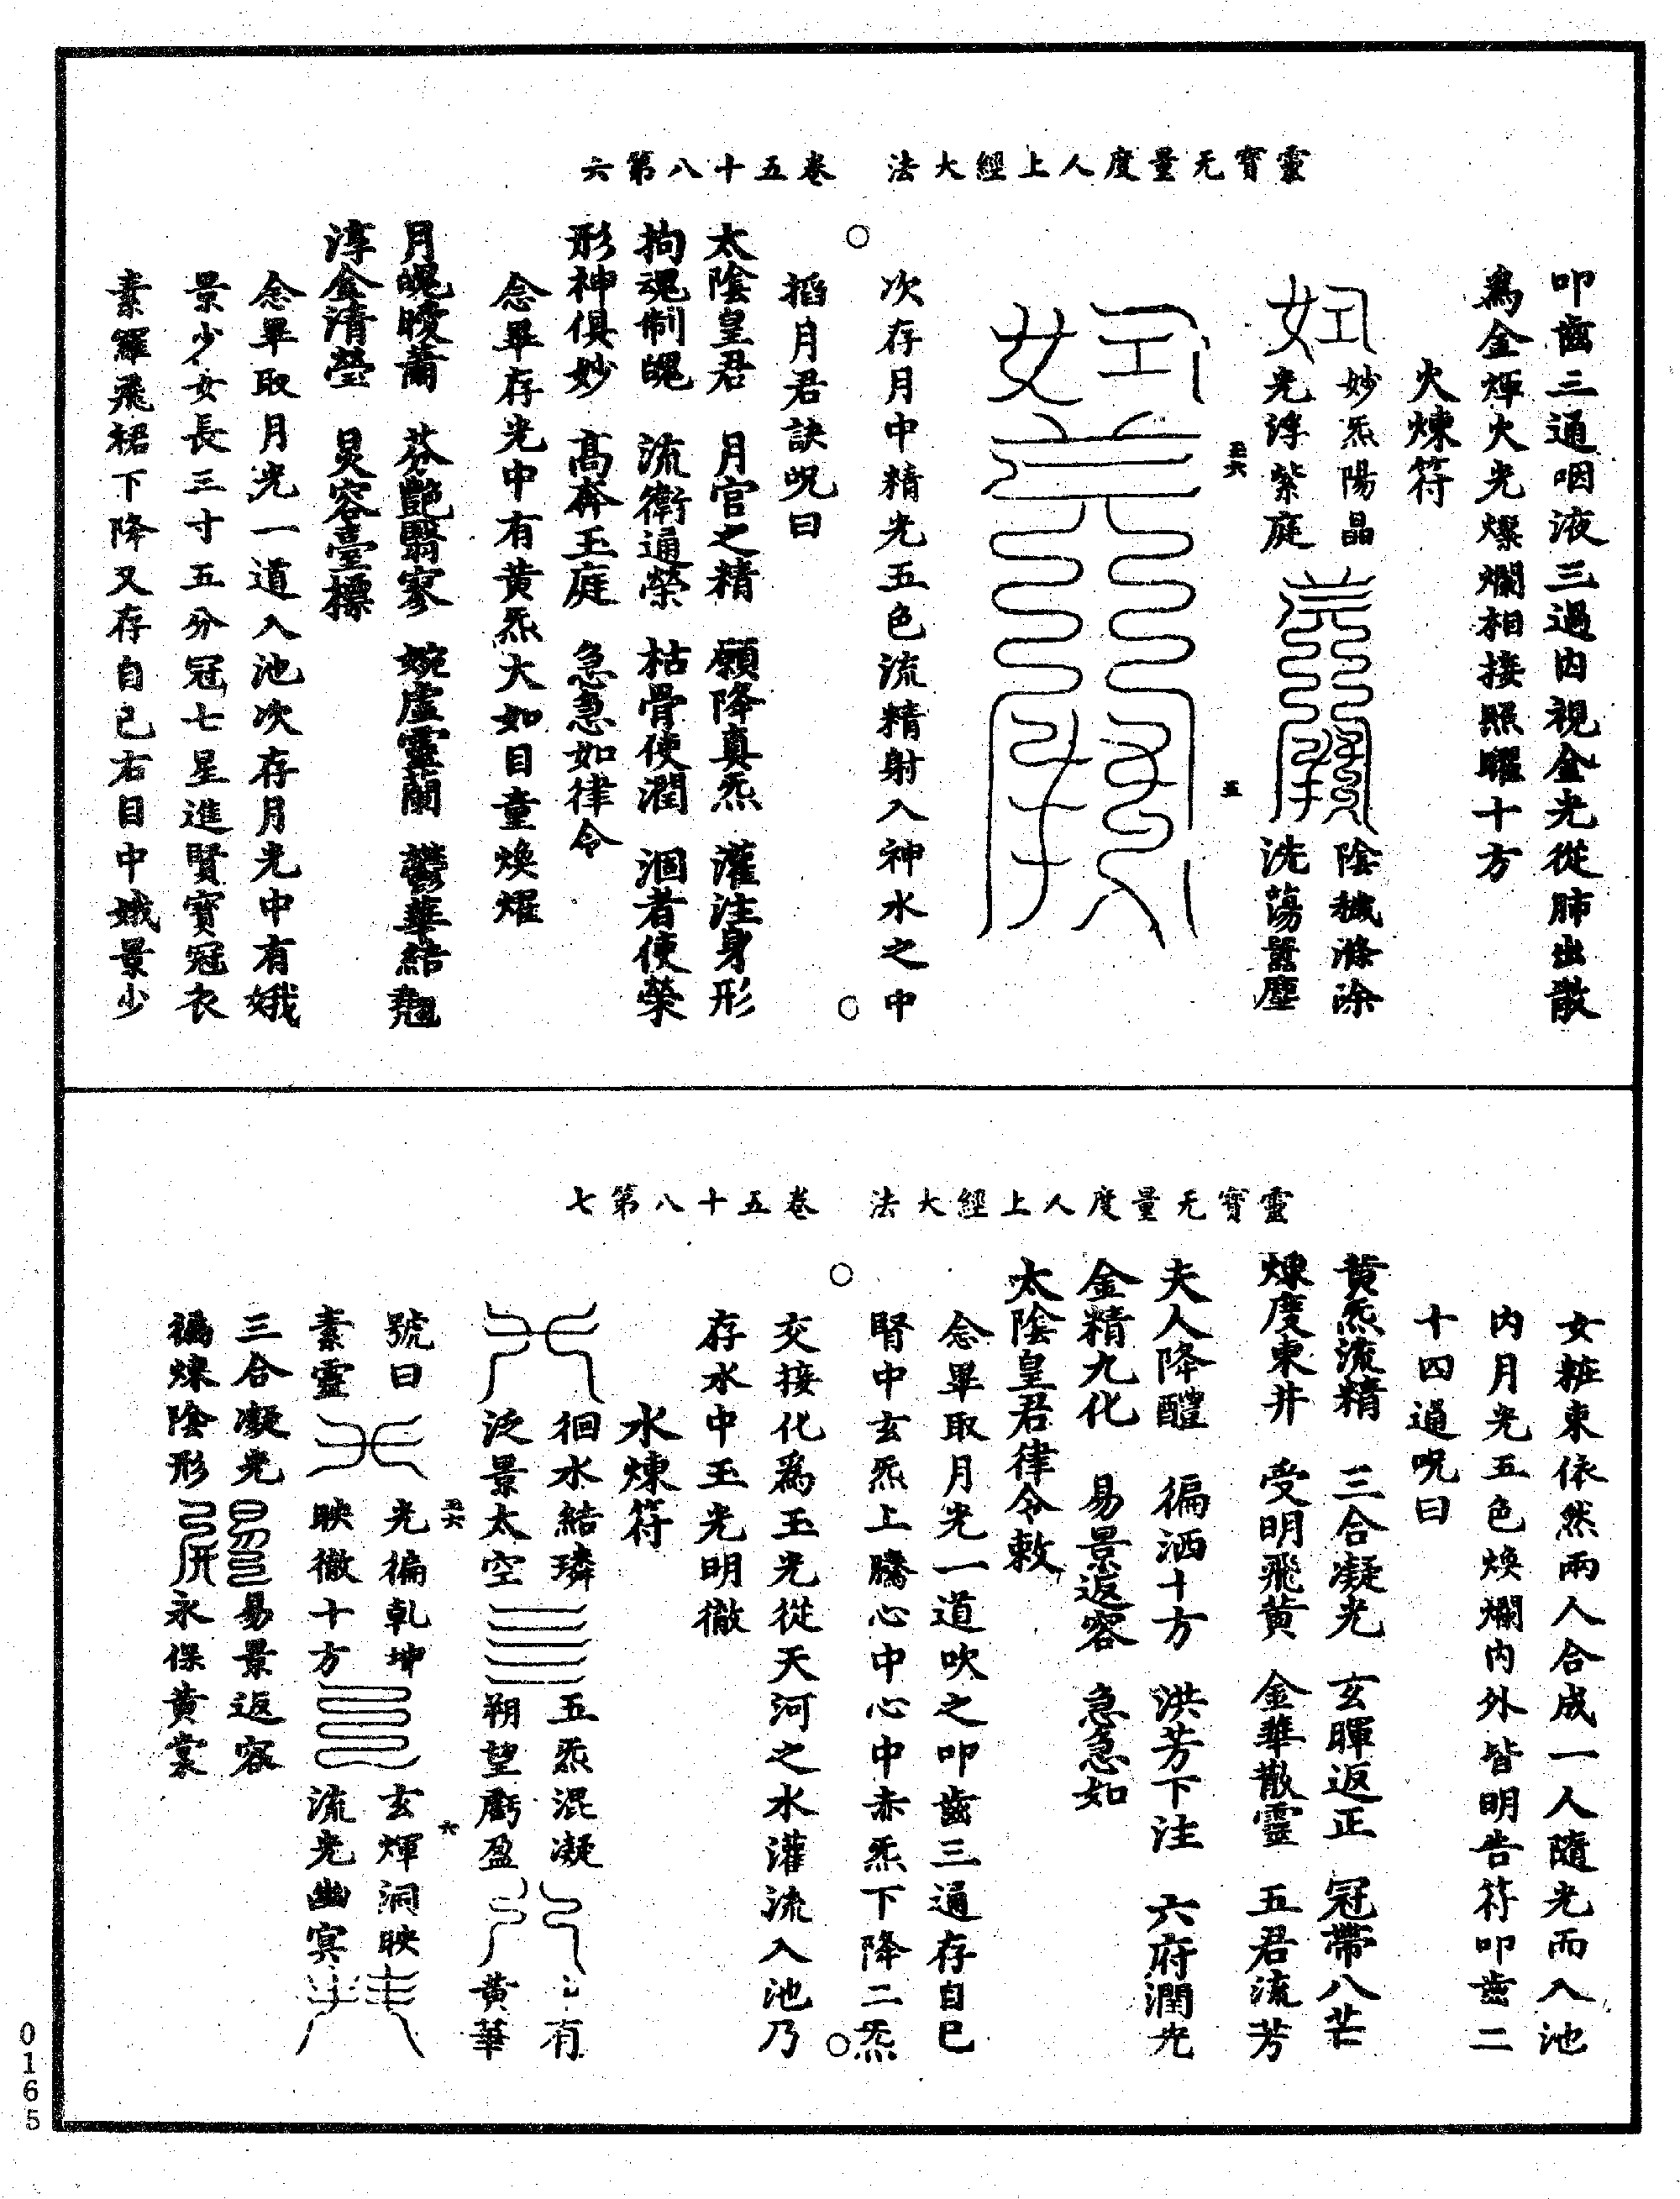 靈寶无量度人上經大法 卷五十八第六
叩齒三通咽液三過內視金光從肺出散
為金煇火光燦爛相接照曜十方
火煉符
妙炁陽晶 陰穢滌除
光浮紫庭 洗蕩囂塵
次存月中精光五色流精射入神水之中
搯月君訣呪曰
太陰皇君 月宮之精 願降真炁 灌注身形
拘魂制魄 流衛通榮 枯骨使潤 涸者使榮
形神俱妙 高奔玉庭 急急如律令
念畢存光中有黃炁大如目童煥燿
月魄曖蕭 芬艷翳寥 婉虛靈蘭 鬱華結翹
淳金清瑩 炅容臺摽
念畢取月光一道入池次存月光中有娥
景少女長三寸五分冠七星進賢寶冠衣
素羅飛裙下降又存自己右目中娥景少
靈寶无量度人上經大法 卷五十八第七
女粧束依然兩人合成一人隨光而入池
內月光五色煥爛內外皆明告符叩齒二
十四通呪曰
黃炁流精 三合凝光 玄暉返正 冠帶八芒
煉度東井 受明飛黃 金華散靈 五君流芳
夫人降醴 徧洒十方 洪芳下注 六府潤光
金精九化 易景返容 急急如
太陰皇君律令敕
念畢取月光一道吹之叩齒三通存自己
腎中玄炁上騰心中心中赤炁下降二炁
交接化為玉光從天河之水灌流入池乃
存水中玉光明徹
水煉符
徊水結璘 五炁混凝 上有
泛景太空 朔望虧盈 黃華
號曰 光徧乾坤 玄煇洞映
素靈 映徹十方 流光幽冥
三合凝光 易景返容
徧煉陰形 永保黃裳
五六
五
五六
六
0165